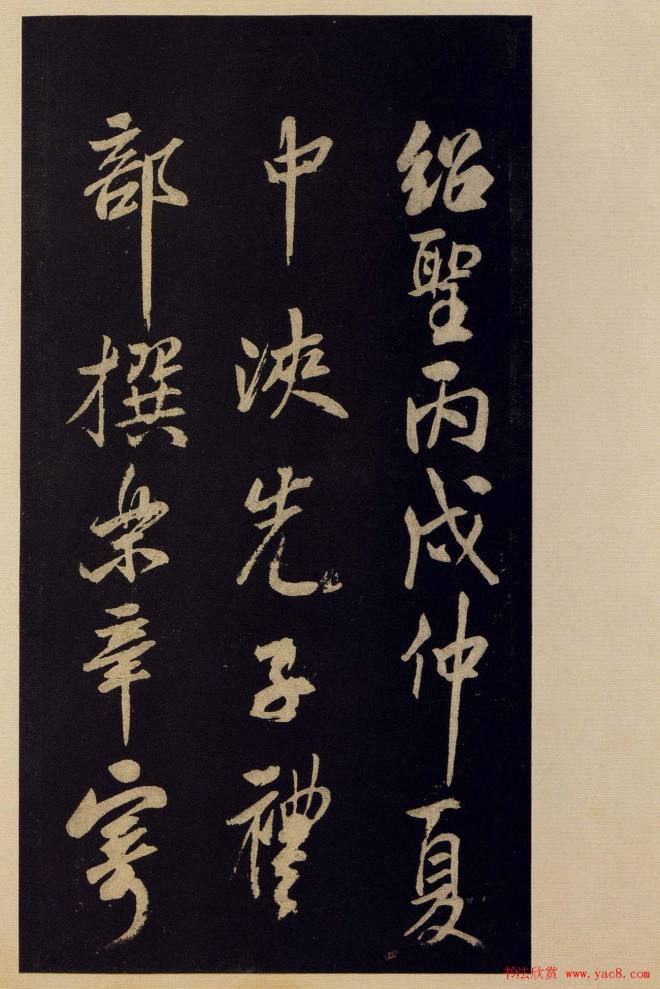 紹聖丙戌仲夏
申浹先子禮
部撰樂章寄
书法欣赏 www.yac8.com